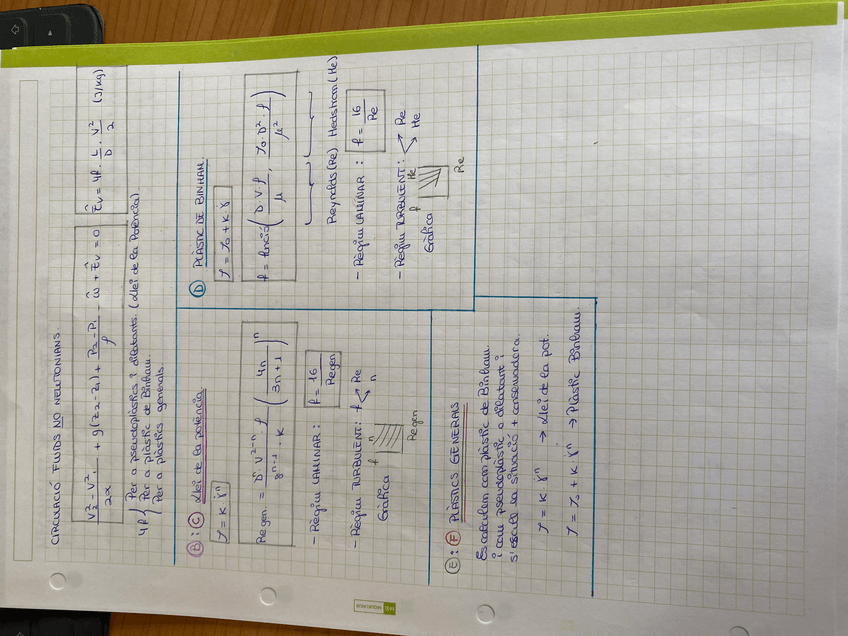 CIRCULACIÓ FLUIDS NO NEWTONIANS
(V₂² - V₁²)/2α + g(z₂ - z₁) + (P₂ - P₁)/ρ + ŵ + Êv = 0
Êv = 4f · L/D · V²/2 (J/kg)
4f { Per a pseudoplàstics i dilatants. (Llei de la Potència)
Per a plàstic de Binham.
Per a plàstics generals.
B i C Llei de la potència
τ = K γ̇ⁿ
Regen = (Dⁿ · V²⁻ⁿ · ρ)/(8ⁿ⁻¹ · K) (4n/(3n+1))ⁿ
- Règim LAMINAR : f = 16/Regen
- Règim TURBULENT: f < Re
n
Gràfica
f n
Regen
D PLÀSTIC DE BINHAM
τ = τ₀ + K γ̇
f = funció (D·V·ρ/μ , τ₀·D²·ρ/μ²)
Reynolds (Re) Hedstrom (He)
- Règim LAMINAR : f = 16/Re
- Règim TURBULENT : < Re
He
Gràfica
f He
Re
E i F PLÀSTICS GENERALS
Es calculem com plàstic de Binham
i com pseudoplàstic o dilatant i
s'escull la situació + conservadora.
τ = K γ̇ⁿ → Llei de la pot.
τ = τ₀ + K γ̇ⁿ → Plàstic Binham.
MIQUELRIUS